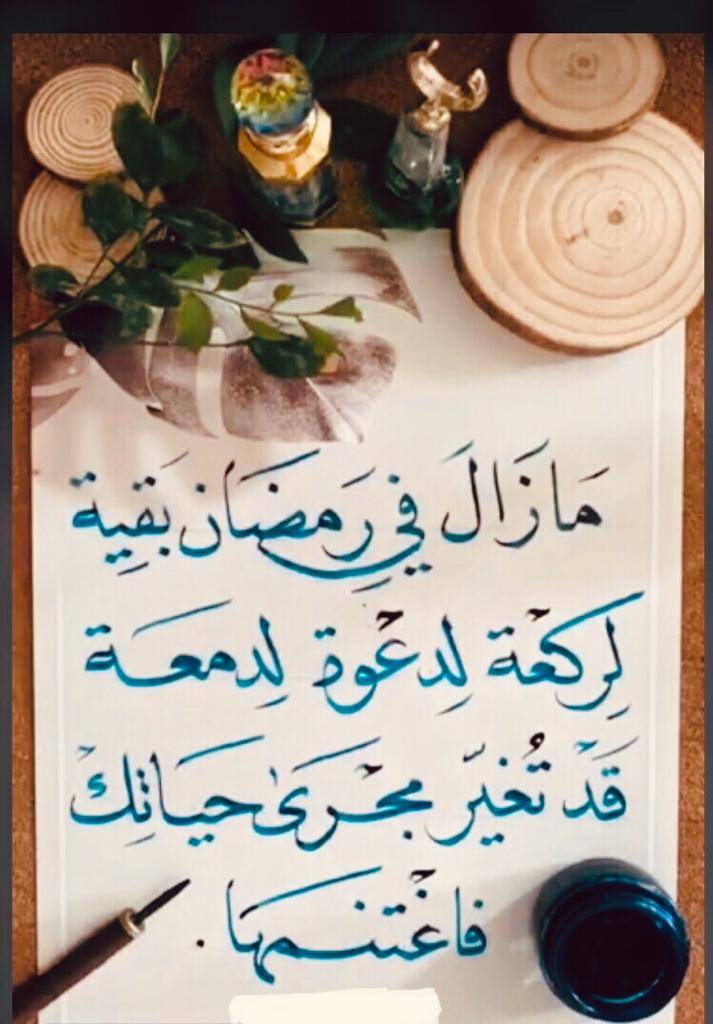 مَا زَالَ في رَمضَان بَقِية
لِركعْة لِدعْوة لِدمعَة
قَدْ تُغيّر مجْرىٰ حيَاتِكْ
فاغْتنمهَا .